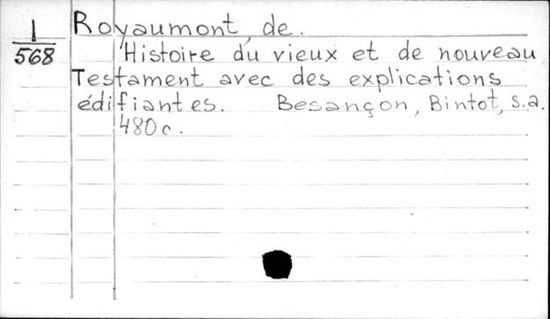 1/568
Royaumont, de.
Histoire du vieux et de nouveau
Testament avec des explications
édifiantes. Besançon, Bintot, s.a.
480c.